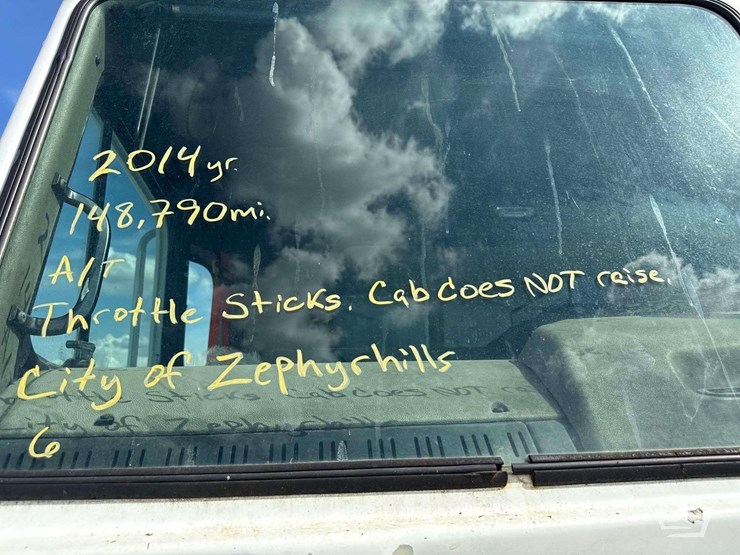 2014 yr.
148,790 mi.
A/T
Throttle Sticks. Cab does NOT raise.
City of Zephyrhills
6